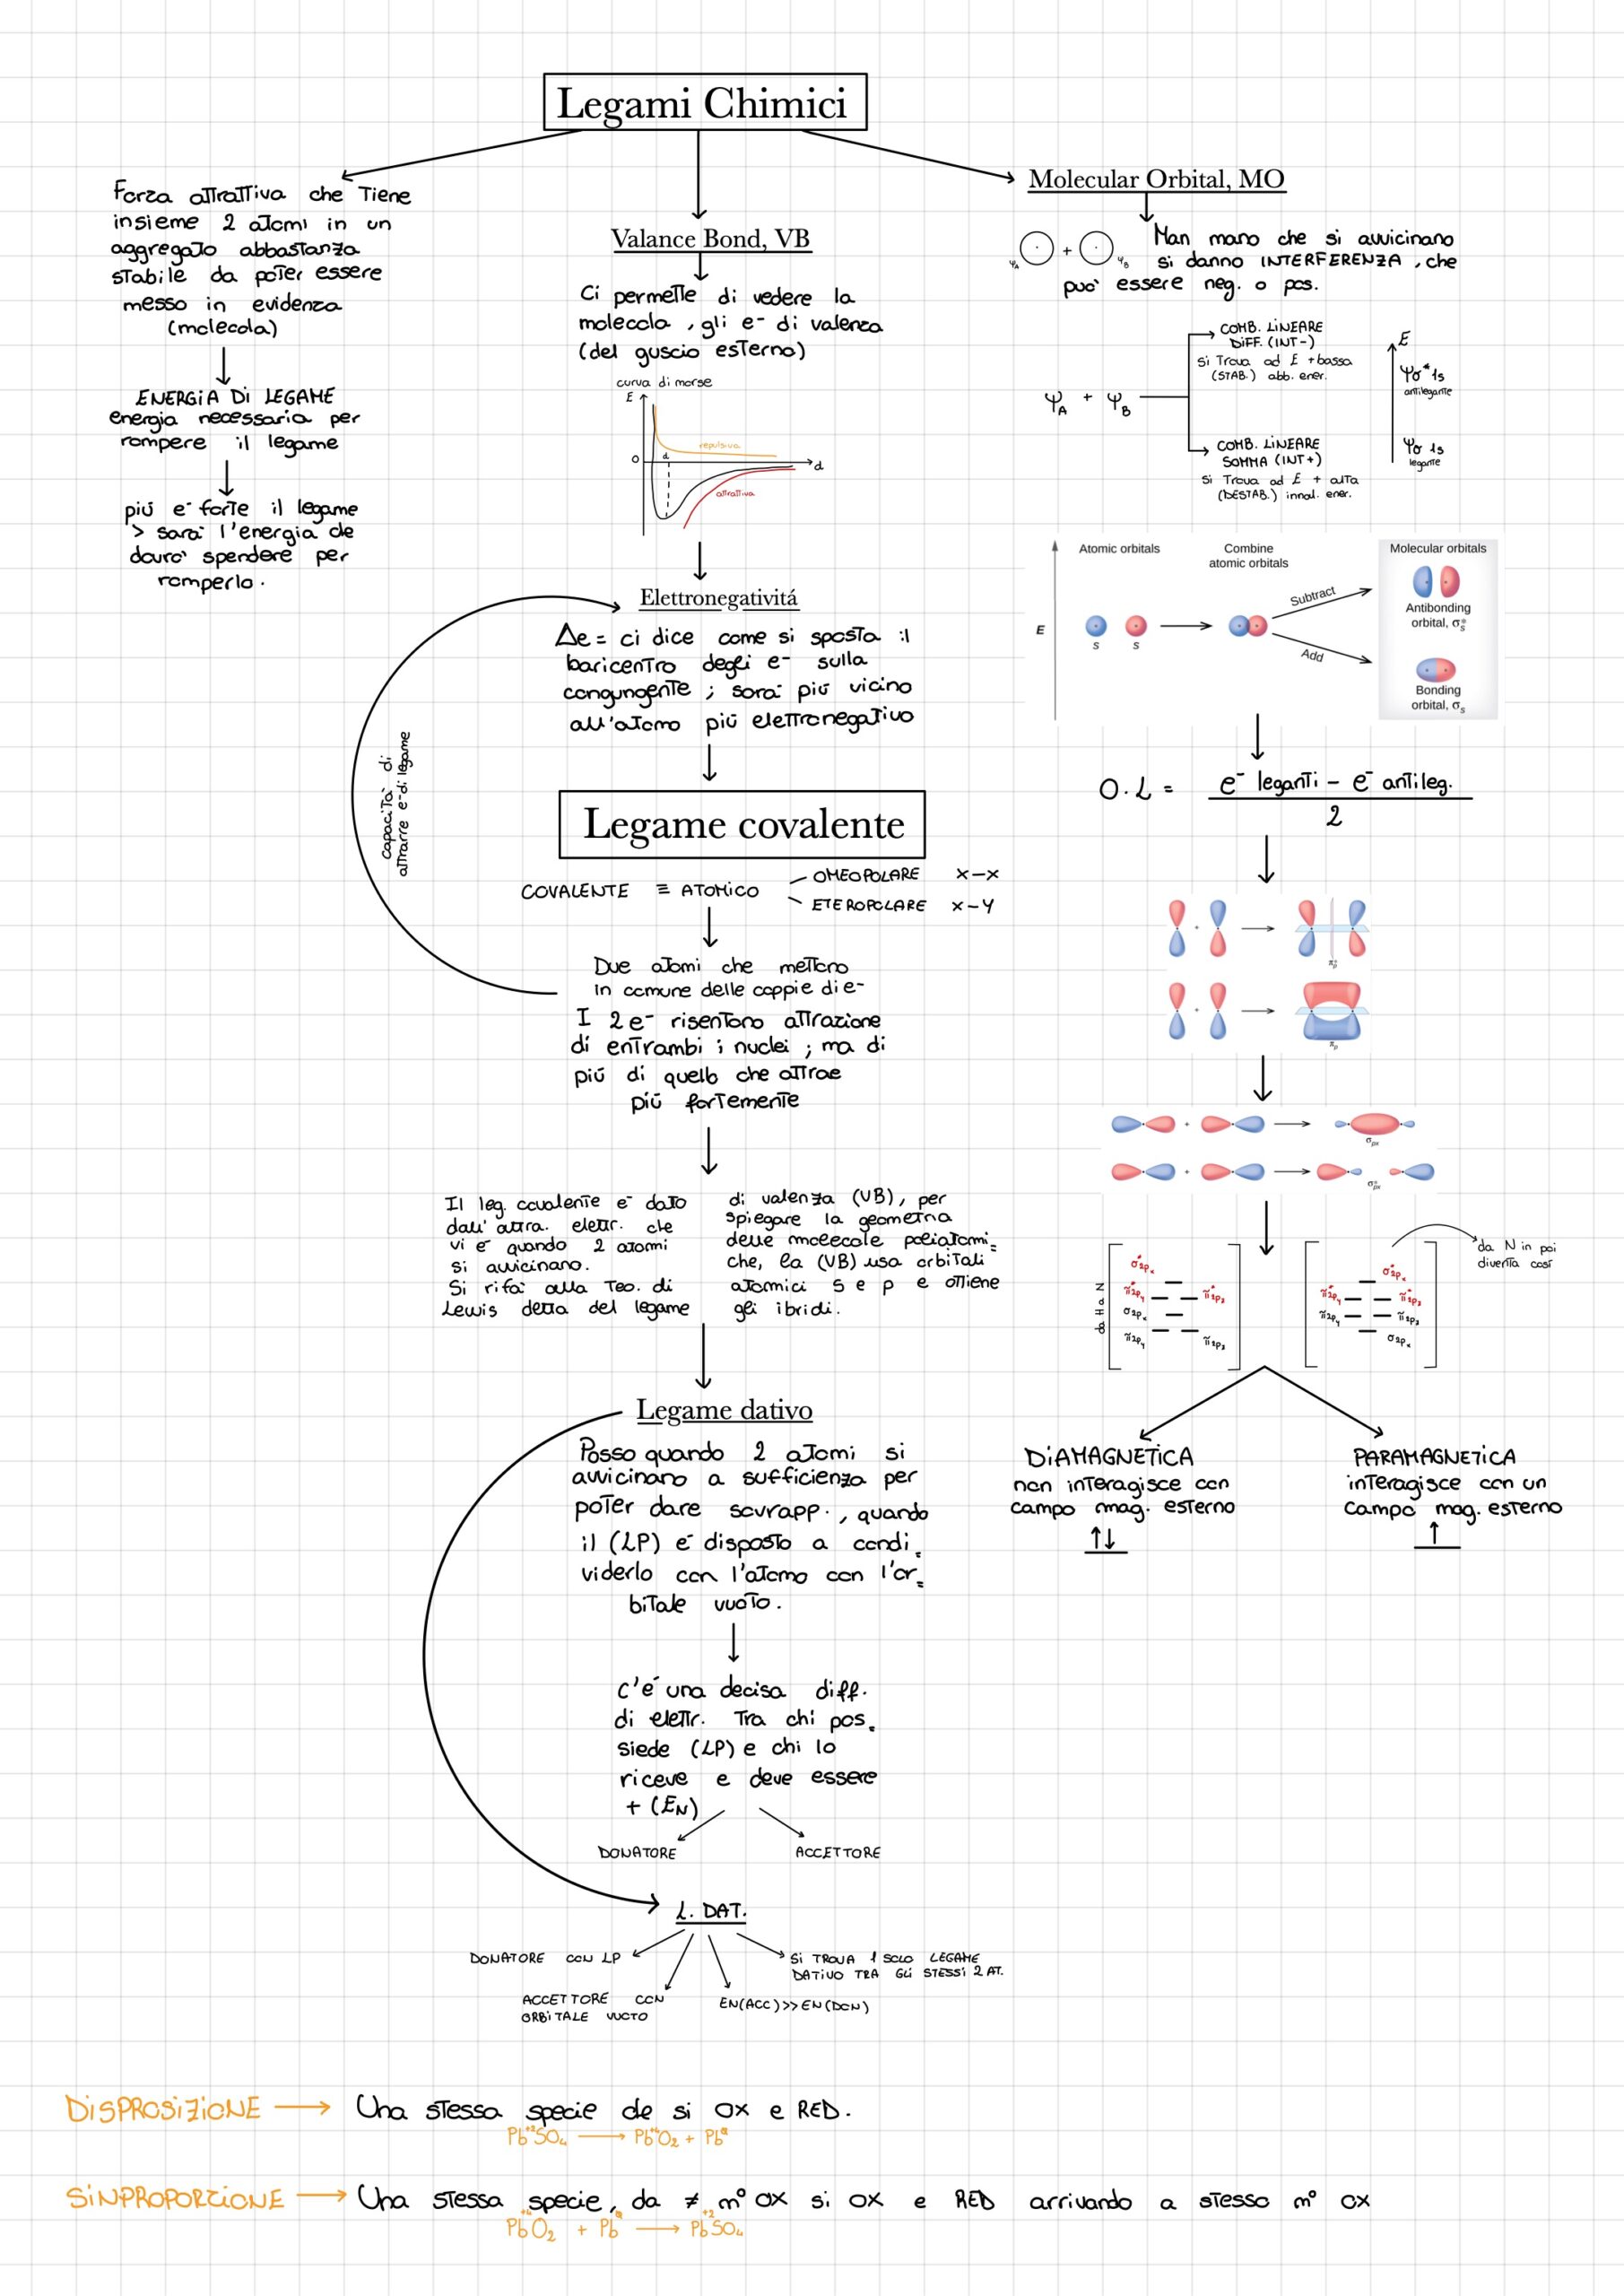 Legami Chimici
Forza attrattiva che tiene
insieme 2 atomi in un
aggregato abbastanza
stabile da poter essere
messo in evidenza
(molecola)
ENERGIA DI LEGAME
energia necessaria per
rompere il legame
più e' forte il legame
> sara' l'energia che
dovro' spendere per
romperlo.
Valance Bond, VB
Ci permette di vedere la
molecola, gli e- di valenza
(del guscio esterno)
curva di morse
E
repulsiva
0
d
d
attrattiva
Elettronegativitá
Δe = ci dice come si sposta il
baricentro degli e- sulla
congungente ; sara' più vicino
all'atomo più elettronegativo
capacita' di
attrarre e- di legame
Legame covalente
COVALENTE ≡ ATOMICO
OMEOPOLARE X-X
ETEROPOLARE X-Y
Due atomi che mettono
in comune delle coppie di e-
I 2e- risentono attrazione
di entrambi i nuclei ; ma di
più di quello che attrae
più fortemente
Il leg. covalente e' dato
dall' attra. elettr. che
vi e' quando 2 atomi
si avvicinano.
Si rifa' alla Teo. di
Lewis detta del legame
di valenza (VB), per
spiegare la geometria
delle molecole poliatomi=
che, la (VB) usa orbitali
atomici s e p e ottiene
gli ibridi.
Legame dativo
Posso quando 2 atomi si
avvicinano a sufficienza per
poter dare sovrapp., quando
il (LP) e' disposto a condi=
viderlo con l'atomo con l'or=
bitale vuoto.
C'e' una decisa diff.
di elettr. tra chi pos=
siede (LP) e chi lo
riceve e deve essere
+ (EN)
DONATORE
ACCETTORE
L. DAT.
DONATORE CON LP
ACCETTORE CON
ORBITALE VUOTO
EN(ACC)>>EN(DON)
SI TROVA 1 SOLO LEGAME
DATIVO TRA GLI STESSI 2 AT.
Molecular Orbital, MO
ψA + ψB
Man mano che si avvicinano
si danno INTERFERENZA, che
puo' essere neg. o pos.
ψA + ψB
COMB. LINEARE
DIFF. (INT-)
Si trova ad E +bassa
(STAB.) abb. ener.
COMB. LINEARE
SOMMA (INT+)
Si trova ad E + alta
(DESTAB.) innal. ener.
E
ψσ*1s
antilegante
ψσ 1s
legante
Atomic orbitals
Combine
atomic orbitals
Molecular orbitals
E
s
s
Subtract
Add
Antibonding
orbital, σs*
Bonding
orbital, σs
O.L = e- leganti - e- antileg.
2
+
πp*
+
πp
+
σpx
+
σpx*
σ*2px
π*2py
π*2pz
σ2px
π2py
π2pz
σ*2px
π*2py
π*2pz
π2py
π2pz
σ2px
da N in poi
diventa così
DIAMAGNETICA
non interagisce con
campo mag. esterno
↑↓
PARAMAGNETICA
interagisce con un
campo mag. esterno
↑
DISPROSIZIONE → Una stessa specie che si OX e RED.
Pb+2SO4 → Pb+4O2 + Pb0
SINPROPORZIONE → Una stessa specie, da ≠ n° OX si OX e RED arrivando a stesso n° OX
Pb+4O2 + Pb0 → Pb+2SO4